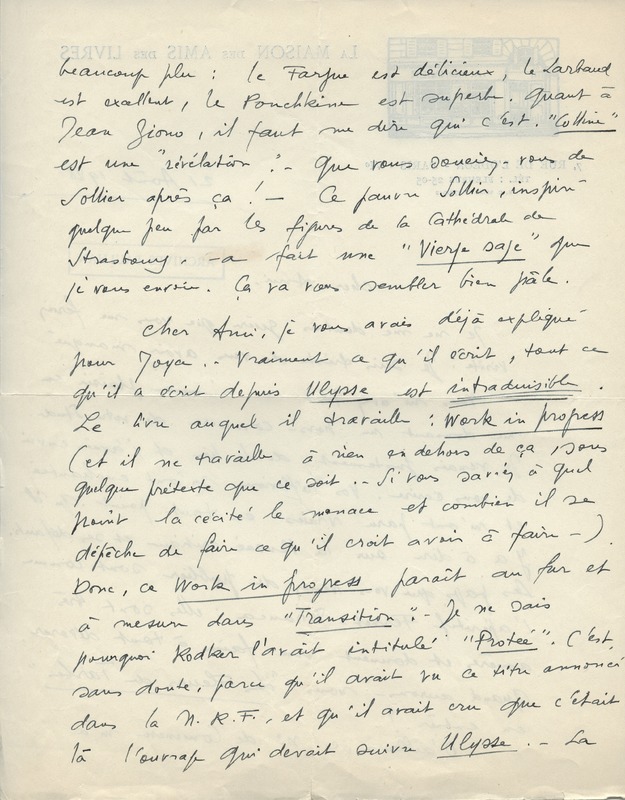 beaucoup plu : le Fargue est délicieux, le Larbaud
est excellent, le Pouchkine est superbe. Quant à
Jean Giono, il faut me dire qui c'est. "Colline"
est une "révélation". - Que vous souciez-vous de
Sollier après ça ! - Ce pauvre Sollier, inspiré
quelque peu par les figures de la Cathédrale de
Strasbourg. - a fait une "Vierge sage" que
je vous envoie. Ça va vous sembler bien pâle.
Cher Ami, je vous avais déjà expliqué
pour Joyce. - Vraiment ce qu'il écrit, tout ce
qu'il a écrit depuis Ulysse est intraduisible.
Le livre auquel il travaille : Work in progress
(et il ne travaille à rien en dehors de ça, sous
quelque prétexte que ce soit. - Si vous saviez à quel
point la cécité le menace et combien il se
dépêche de faire ce qu'il croit avoir à faire -)
Donc, ce Work in progress paraît au fur et
à mesure dans "Transition". - Je ne sais
pourquoi Rodker l'avait intitulé "Protée". C'est,
sans doute, parce qu'il avait vu ce titre annoncé
dans la N.R.F., et qu'il avait cru que c'était
là l'ouvrage qui devait suivre Ulysse. - La
LA MAISON DES AMIS DES LIVRES